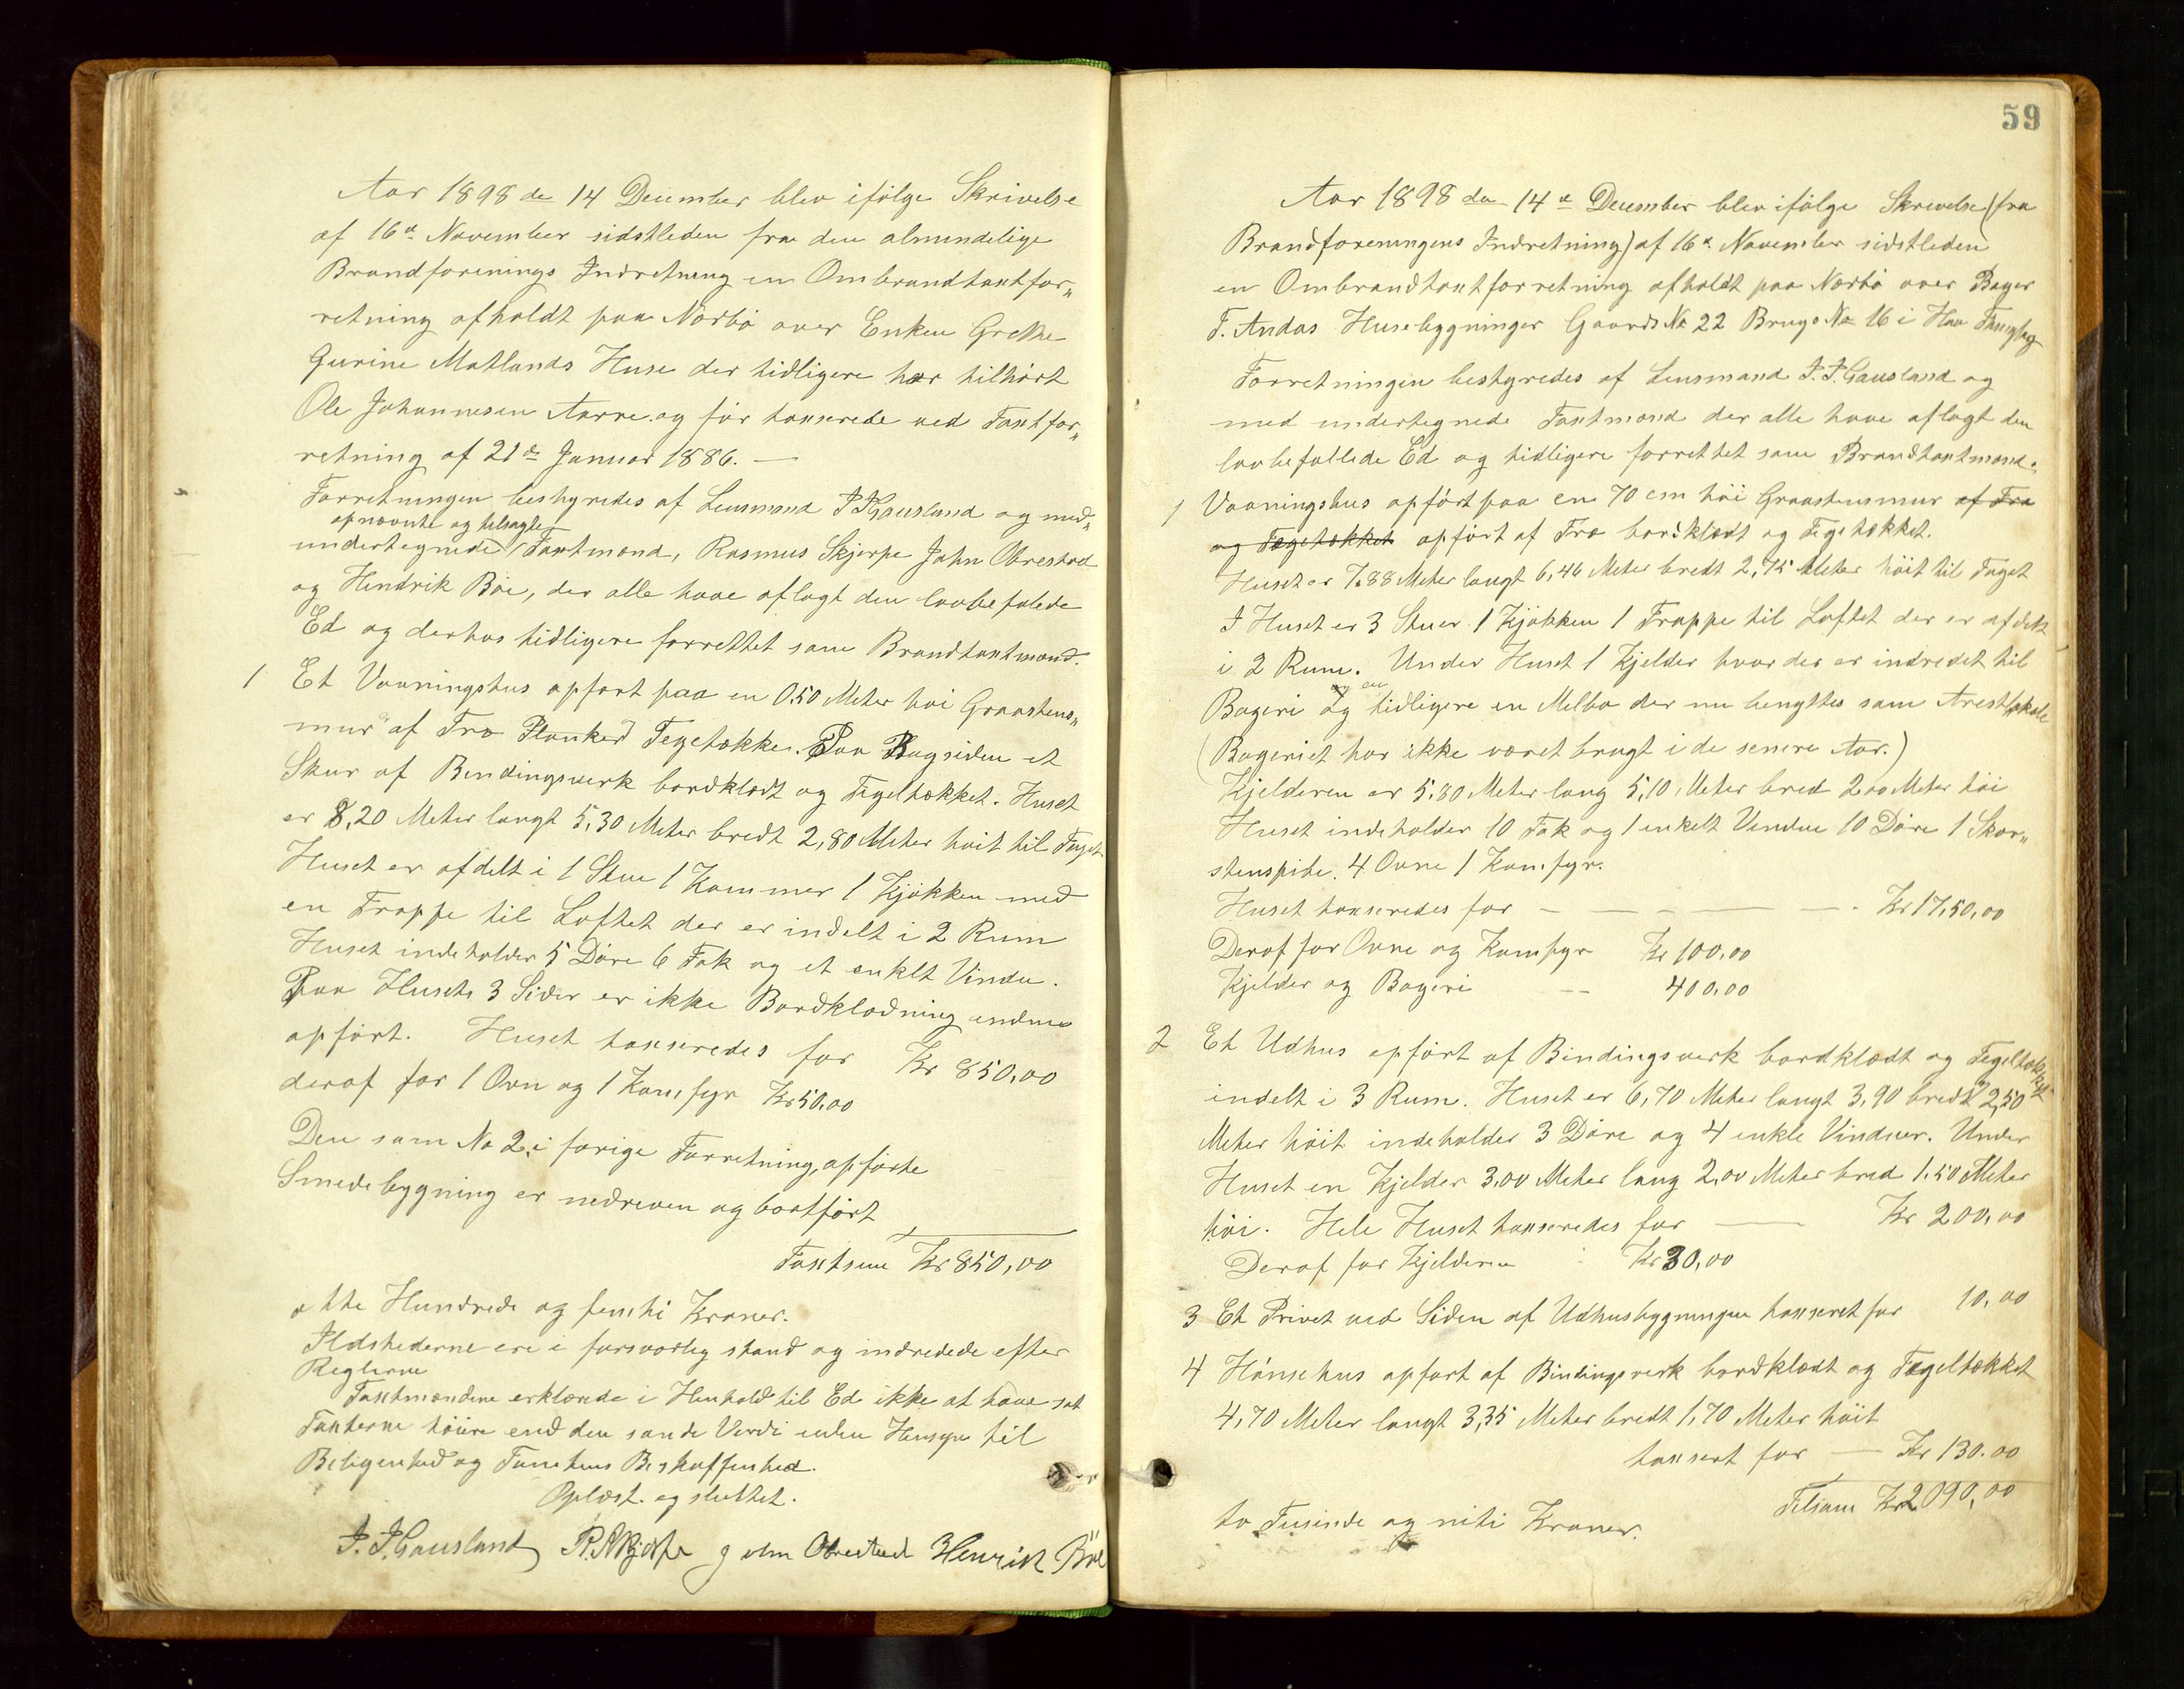 Aar 1898 den 14 December blev ifölge Skrivelse
af 16de November sidstleden fra den almindelige
Brandforenings Indretning en Ombrandtaxtfor„
retning afholdt paa Nærbö over Enken Grethe
Gurine Matlands Huse der tidligere har tilhört
Ole Johannesen Aarre og för taxserede ved Taxtfor„
retning af 21de Januar 1886. —
Forretningen bestyredes af Lensmand J. J. Gausland og med„
opnævnte og tilsagte
undertegnede Taxtmænd, Rasmus Skjerpe John Obrestad
og Hendrik Böe, der alle have aflagt den lovbefalede
Ed og derhos tidligere forrettet som Brandtaxtmænd.
1 Et Vaaningshus opfört paa en 0.50 Meter höi Graastens„
mur af Træ Planker Tegetækker. Paa Bagsiden et
Skur af Bindingsverk bordklædt og Tegeltækket. Huset
er 8,20 Meter langt 5,30 Meter bredt 2,80 Meter höit til Taget
Huset er afdelt i 1 Stue 1 Kammer 1 Kjökken med
en Trappe til Loftet der er indelt i 2 Rum
Huset indeholder 5 Döre 6 Fak og et enklt Vindu.
Paa Husets 3 Sider er ikke Bordklædning endnu
opfört. Huset taxseredes for Kr 850,00
deraf for 1 Ovn og 1 Komfyr Kr 50,00
Den som No 2 i forige Forretning, opförte
Smedebygning er nedreven og bortfört
Taxtsum Kr 850,00
otte Hundrede og femti Kroner.
Ildstederne ere i forsvarlig stand og indredede efter
Reglerne
Taxtmændene erklærede i Henhold til Ed ikke at have sat
Taxterne höiere end den sande Verdi uden Hensyn til
Beligenhed og Tomtens Beskaffenhed.
Oplæst og sluttet.
J. J. Gausland R. Skjerpe John Obrestad Henrik Böe
59
Aar 1898 den 14de December blev ifölge Skrivelse (fra
Brandforeningens Indretning) af 16de November sidstleden
en Ombrandtaxtforretning afholdt paa Nærbö over Bager
T. Andas Husebygninger Gaards No 22 Brugs No 16 i Haa Thinglag
Forretningen bestyredes af Lensmand J. J. Gausland og
med undertegnede Taxtmænd der alle have aflagt den
lovbefallede Ed og tidligere forrettet som Brandtaxtmænd.
1 Vaaningshus opfört paa en 70 cm höi Graastensmur af Træ
og Tegetækket opfört af Træ bordklædt og Tegetækket.
Huset er 7,88 Meter langt 6,46 Meter bredt 2,75 Meter höit til Taget
I Huset er 3 Stuer 1 Kjökken 1 Trappe til Loftet der er afdelt
i 2 Rum. Under Huset 1 Kjelder hvor der er indredet til
og en
Bageri og tidligere en Melbo der nu benyttes som Arestlokale
(Bageriet har ikke været brugt i de senere Aar.)
Kjelderen er 5,80 Meter lang 5,10 Meter bred 2.00 Meter höi
Huset indeholder 10 Fak og 1 enkelt Vindue 10 Döre 1 Skor„
stenspibe. 4 Ovne 1 Komfyr.
Huset taxseredes for — — — — — Kr 17,50,00
Deraf for Ovne og Komfyr Kr 100,00
Kjelder og Bageri — 400,00
2 Et Udhus opfört af Bindingsverk bordklædt og Tegeltækket
indelt i 3 Rum. Huset er 6,70 Meter langt 3,90 bredt 2,50
Meter höit indeholder 3 Döre og 4 enkle Vinduer. Under
Huset en Kjelder 3.00 Meter lang 2,00 Meter bred 1.50 Meter
höi. Hele Huset taxseredes for — Kr 200,00
Deraf for Kjelderen Kr 30,00
3 Et Privet ved Siden af Udhusbygningen taxseret for 10,00
4 Hönsehus opfört af Bindingsverk bordklædt og Tegeltækket
4,70 Meter langt 3,35 Meter bredt 1,70 Meter höit
taxsert for — Kr 130.00
Tilsam Kr 2090,00
to Tusinde og niti Kroner.